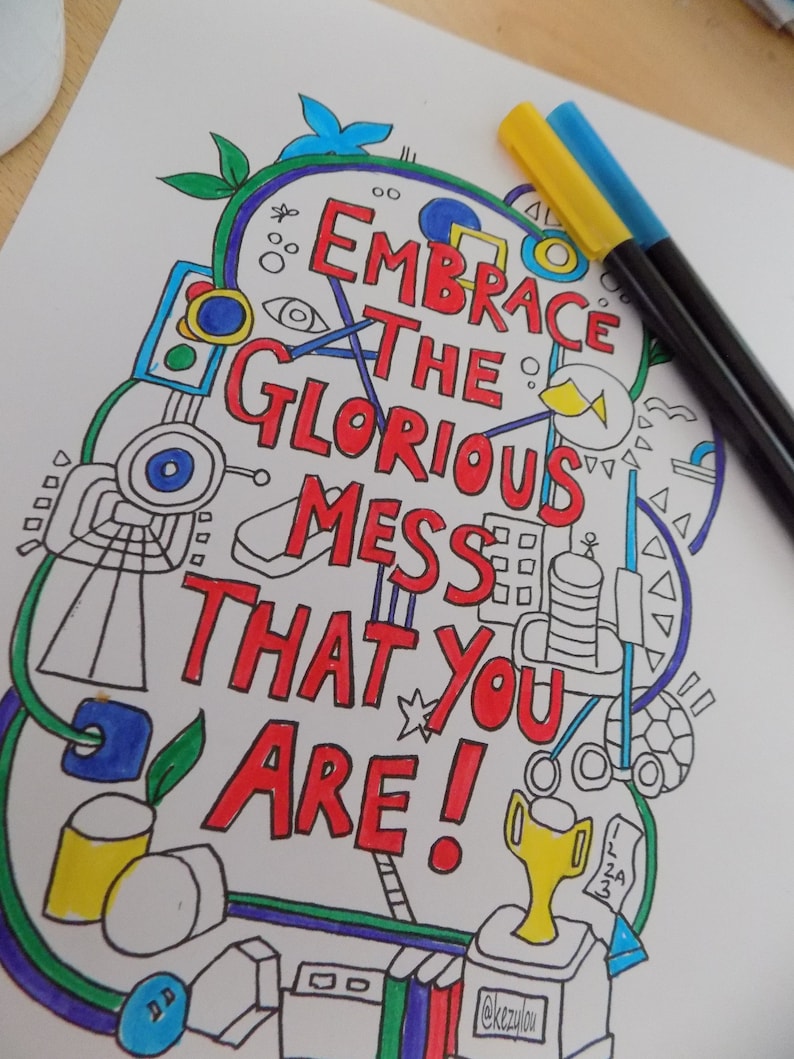 EMBRACE
THE
GLORIOUS
MESS
THAT YOU
ARE!
1
2
2A
3
@kezylou